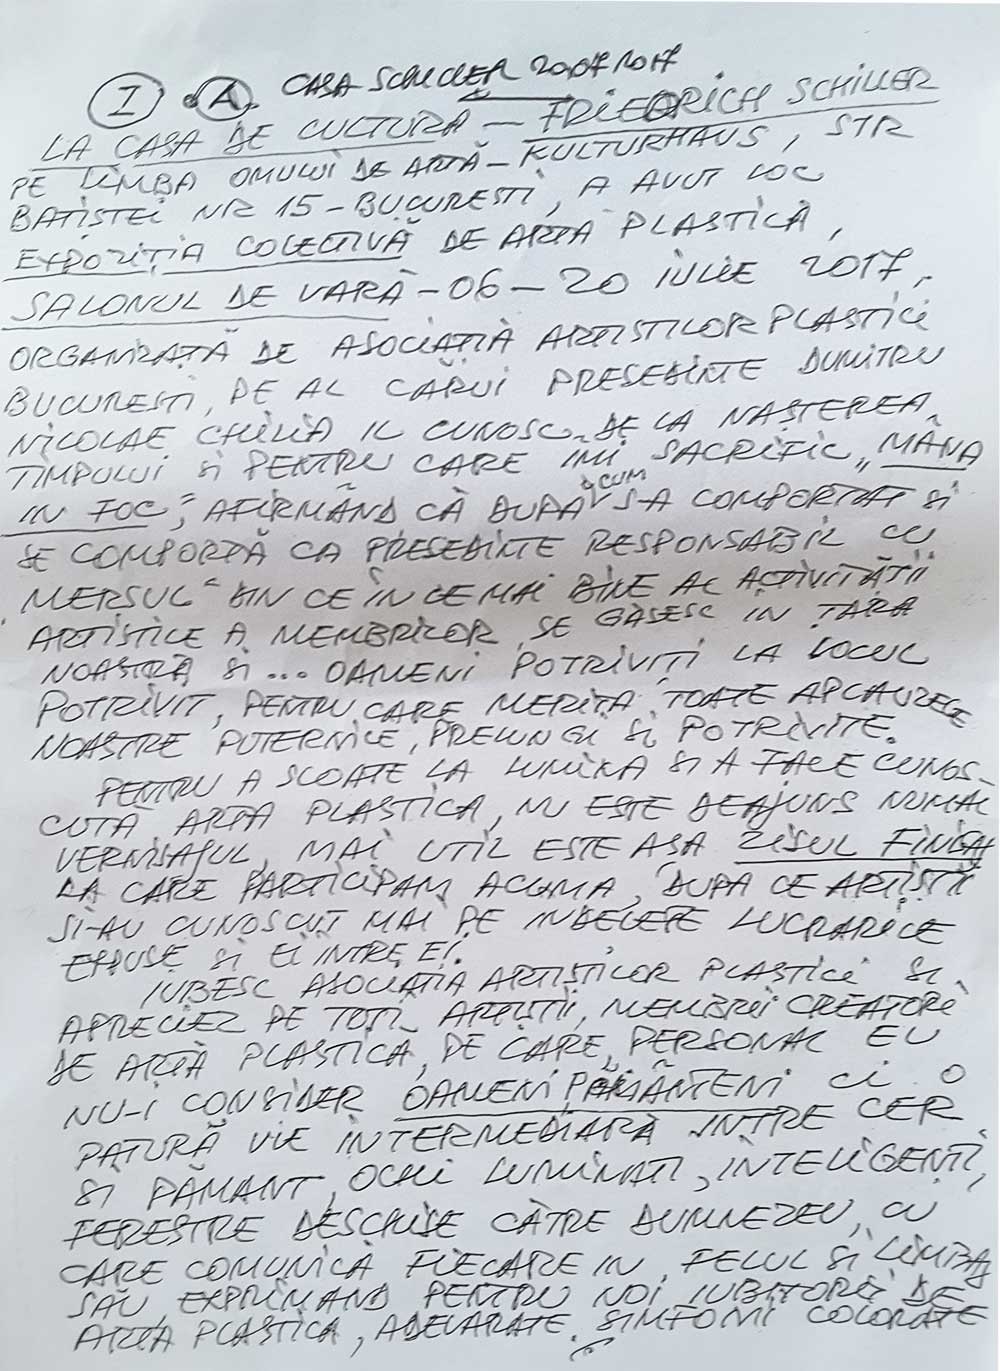 I A. CASA SCHILLER 20072017
LA CASA DE CULTURĂ – FRIEDRICH SCHILLER
PE LIMBA OMULUI DE ARTĂ – KULTURHAUS, STR
BATISTEI NR 15 – BUCURESTI, A AVUT LOC
EXPOZIȚIA COLECTIVĂ DE ARTA PLASTICĂ,
SALONUL DE VARĂ – 06 – 20 IULIE 2017,
ORGANIZATĂ DE ASOCIAȚIA ARTISTILOR PLASTICI
BUCURESTI, PE AL CĂRUI PRESEDINTE DUMITRU
NICOLAE CHILIA IL CUNOSC DE LA NAȘTEREA
TIMPULUI SI PENTRU CARE IMI SACRIFIC „MÂNA
IN FOC”, AFIRMÂND CĂ DUPA CUM S-A COMPORTAT SI
SE COMPORTĂ CA PRESEDINTE RESPONSABIL CU
„MERSUL” DIN CE ÎN CE MAI BINE AL ACTIVITĂȚII
ARTISTICE A MEMBRILOR, SE GĂSESC IN ȚARA
NOASTRĂ SI... OAMENI POTRIVIȚI LA LOCUL
POTRIVIT, PENTRU CARE MERITA TOATE APLAUZELE
NOASTRE PUTERNICE, PRELUNGI SI POTRIVITE.
PENTRU A SCOATE LA LUMINA SI A FACE CUNOS-
CUTĂ ARTA PLASTICA, NU ESTE DEAJUNS NUMAI
VERNISAJUL, MAI UTIL ESTE AȘA ZISUL FINISAJ
LA CARE PARTICIPAM ACUMA, DUPA CE ARTIȘTII
SI-AU CUNOSCUT MAI PE INDELETE LUCRARILE
EXPUSE SI EI ÎNTRE EI.
IUBESC ASOCIAȚIA ARTIȘTILOR PLASTICI SI
APRECIEZ PE TOȚI ARTIȘTII, MEMBRII CREATORI
DE ARTĂ PLASTICĂ, PE CARE, PERSONAL EU
NU-I CONSIDER OAMENI PĂMÂNTENI CI O
PATURĂ VIE INTERMEDIARĂ INTRE CER
SI PĂMANT, OCHI LUMINATI, INTELIGENȚI,
FERESTRE DESCHISE CĂTRE DUMNEZEU, CU
CARE COMUNICĂ FIECARE IN FELUL SI LIMBAJ
SĂU, EXPRIMAND PENTRU NOI IUBITORII DE
ARTA PLASTICA, ADEVARATE SIMFONII COLORATE